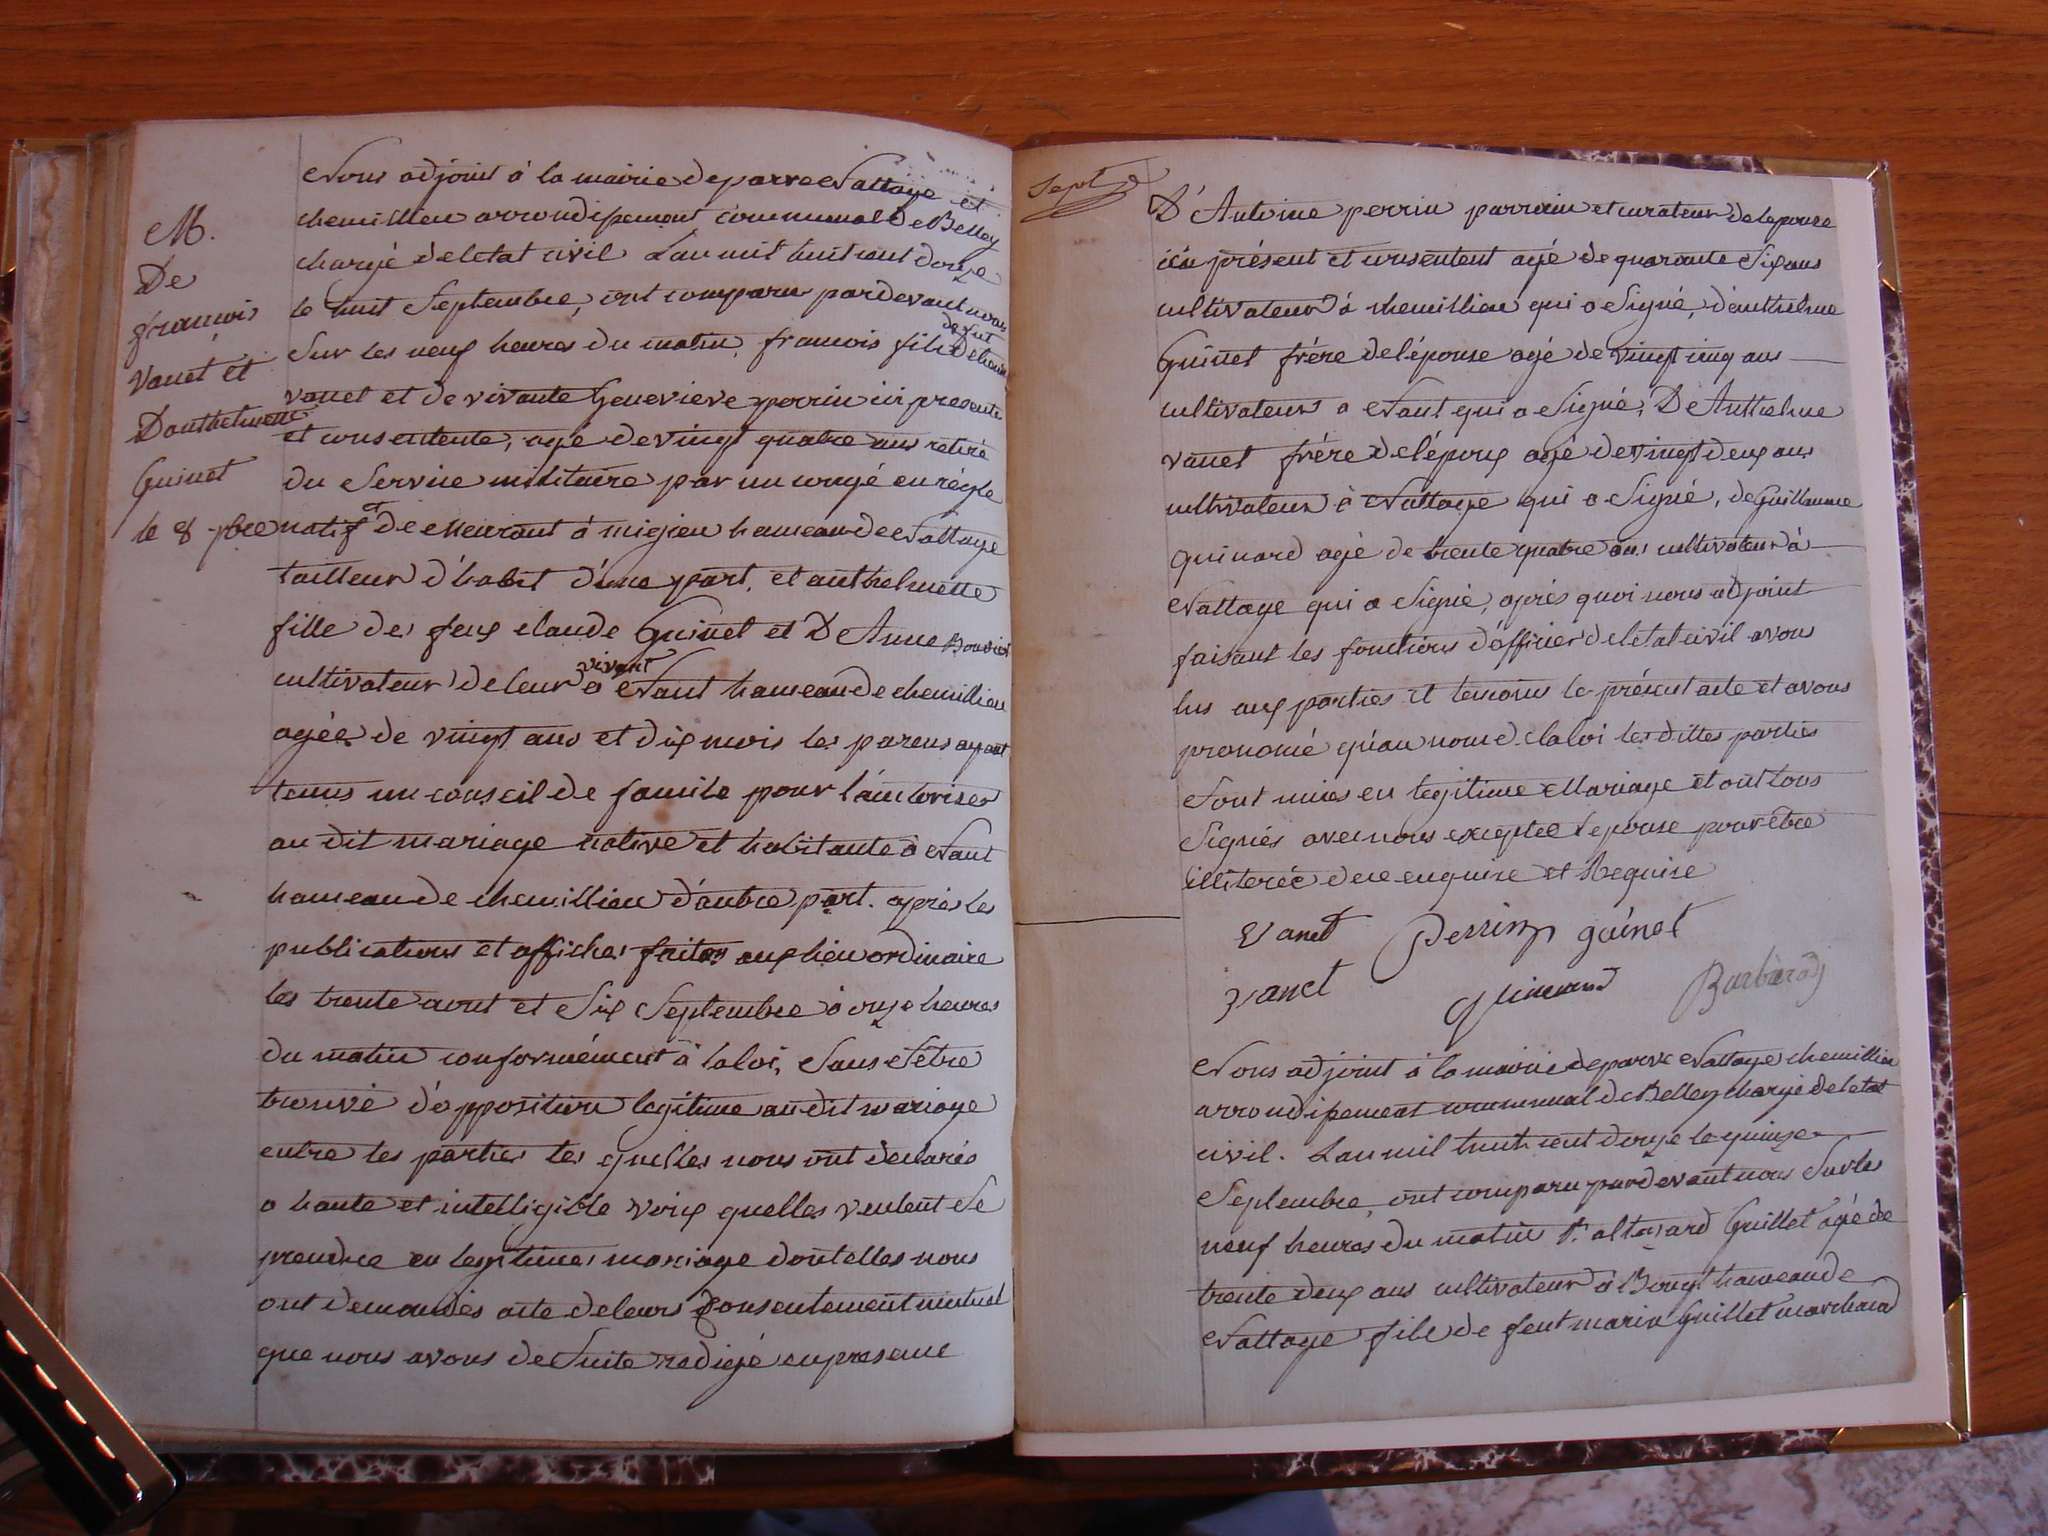 M.
De
françois
vanet et
Danthelmette
Guinet
le 8 7bre
Nous adjoint à la mairie de parve Nattage et
chemillieu arrondissement communal de Belley
chargé de letat civil Lan mil huit cent douze
le huit Septembre, ont comparu pardevant nous
Sur les neuf heures du matin, francois fils de defunt
vanet et de vivante Genevieve perrin ici presente
et consentente, agé de vingt quatre ans retiré
du Service militaire par un congé en régle
natif et de meurant à migieu hameau de Nattage
tailleur d'habit d'une part, et anthelmette
fille des feux claude Guinet et D Anne Bouvier
cultivateur de leur vivant a Nant hameau de chemillieu
agée de vingt ans et dix mois les parens ayant
tenus un conseil de famile pour l'authoriser
au dit mariage native et habitante à Nant
hameau de chemillieu d'autre part. aprés les
publications et affiches faites aux lieu ordinaire
les trente aout et Six Septembre à onze heures
du matin conformément à la loi, Sans Sêtre
trouvé d'opposition legitime au dit mariage
entre les parties les quelles nous ont déclarés
a haute et intelligible voix quelles veulent Se
prendre en legitimes mariage dont elles nous
ont demandés acte de leurs Consentement mutuel
que nous avons de Suite redigé en presence
Sept
D'Antoine perrin parrain et curateur de lepouse
ici présent et consentent agé de quarante Six ans
cultivateur à chemillieu qui a Signé, d'anthelme
Guinet frère de l'épouse agé de vingt cinq ans
cultivateur a Nant qui a Signé, D Anthelme
vanet frére de l'époux agé de vingt deux ans
cultivateur à Nattage qui a Signé, de Guillaume
quinard agé de trente quatre ans cultivateur à
Nattage qui a Signé, aprés quoi nous adjoint
faisant les fonctions d'officier de letat civil avons
lus aux parties et temoins le présent acte et avons
prononcé qu'au nom de la loi les dittes parties
Sont unies en legitime Mariage et ont tous
Signés avec nous exceptée lepouse pour être
illiterée de ce enquise et Requise
Vanet perrin guinet
vanet quinard Barbarod
Nous adjoint à la mairie de parve Nattage chemillieu
arrondissement communal de Belley chargé de letat
civil. Lan mil huit cent douze le quinze
Septembre, ont comparu pardevant nous Sur les
neuf heures du matin Guillet agé de
trente deux ans cultivateur à hameau de
Nattage fils de feut marin Guillet marchand